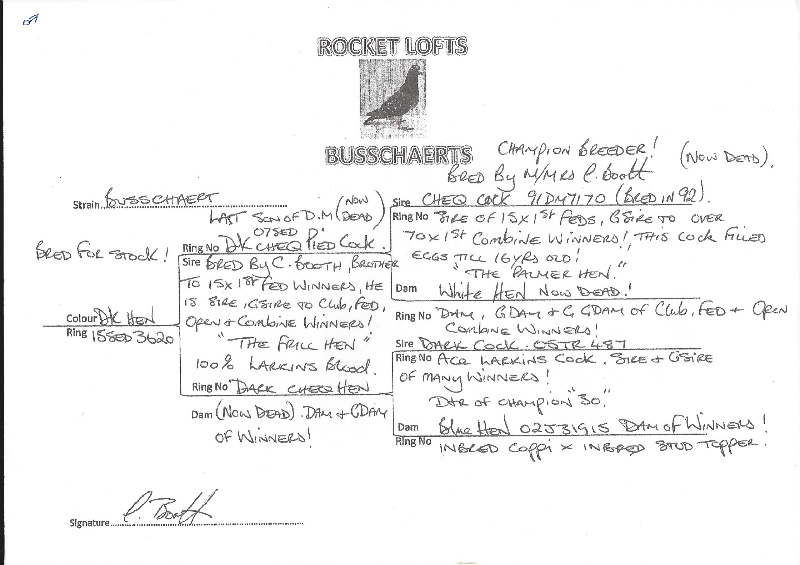 ROCKET LOFTS
BUSSCHAERTS
CHAMPION BREEDER! (NOW DEAD).
BRED BY M/MRS C. Booth
Strain BUSSCHAERT
Bred For Stock!
Colour DK HEN
Ring 15SED3620
LAST SON OF D.M (NOW DEAD)
07SED P.
Ring No DK CHEQ PIED COCK.
Sire BRED BY C. BOOTH, BROTHER
TO 15X1ST FED WINNERS, HE
IS SIRE, GSIRE TO CLUB, FED,
OPEN + COMBINE WINNERS!
"THE FRILL HEN"
100% LARKINS BLOOD.
Ring No DARK CHEQ HEN
Dam (NOW DEAD). DAM + GDAM
OF WINNERS!
Sire CHEQ COCK 91DM7170 (BRED IN 92).
Ring No SIRE OF 15X1ST FEDS, GSIRE TO OVER
70X1ST COMBINE WINNERS!, THIS COCK FILLED
EGGS TILL 16YRS OLD!
"THE PALMER HEN."
Dam White HEN NOW DEAD!
Ring No DAM, GDAM + G.GDAM OF CLUB, FED + OPEN
COMBINE WINNERS!
Sire DARK COCK. OSTR 487
Ring No ACE LARKINS COCK. SIRE + GSIRE
OF MANY WINNERS!
DTR OF CHAMPION "30."
Dam Blue HEN 02J31915 DAM OF WINNERS!
Ring No INBRED COPPI X INBRED STUD TOPPER.
Signature C. Booth